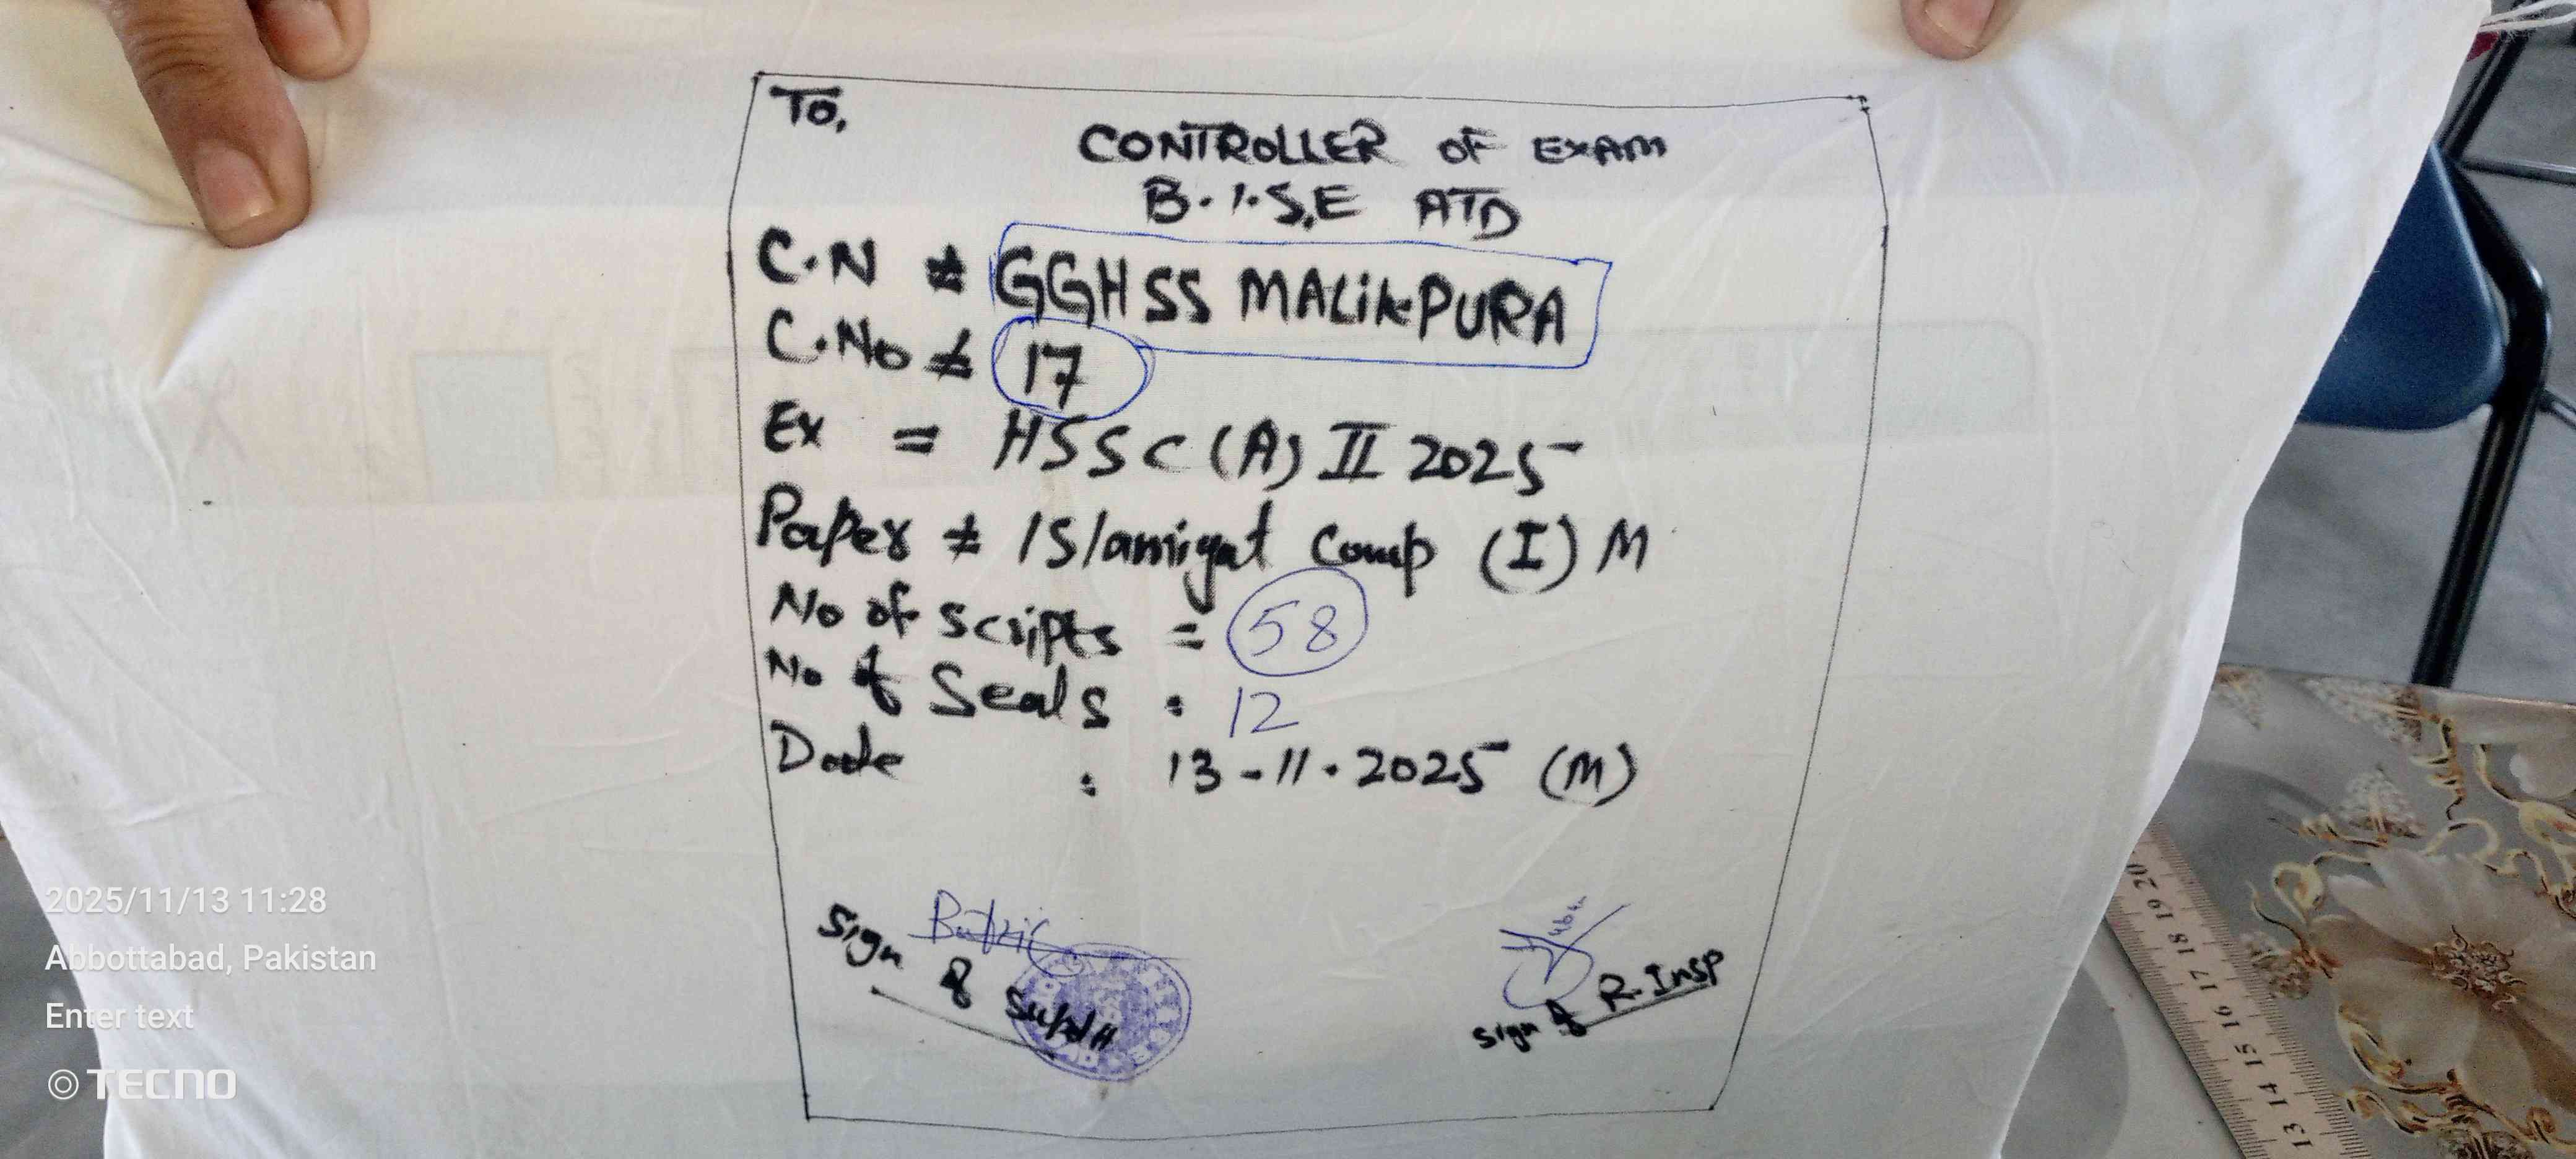 To,
CONTROLLER OF EXAM
B.I.S.E ATD
C.N ≠ GGHSS MALikPURA
C.No ≠ 17
Ex = HSSC (A) II 2025
Paper ≠ ISlamiyat Comp (I) M
No of Scripts = 58
No of Seals : 12
Date : 13-11-2025 (M)
Sign of Supdtt
Sign of R.Insp
2025/11/13 11:28
Abbottabad, Pakistan
Enter text
TECNO
20 19 18 17 16 15 14 13